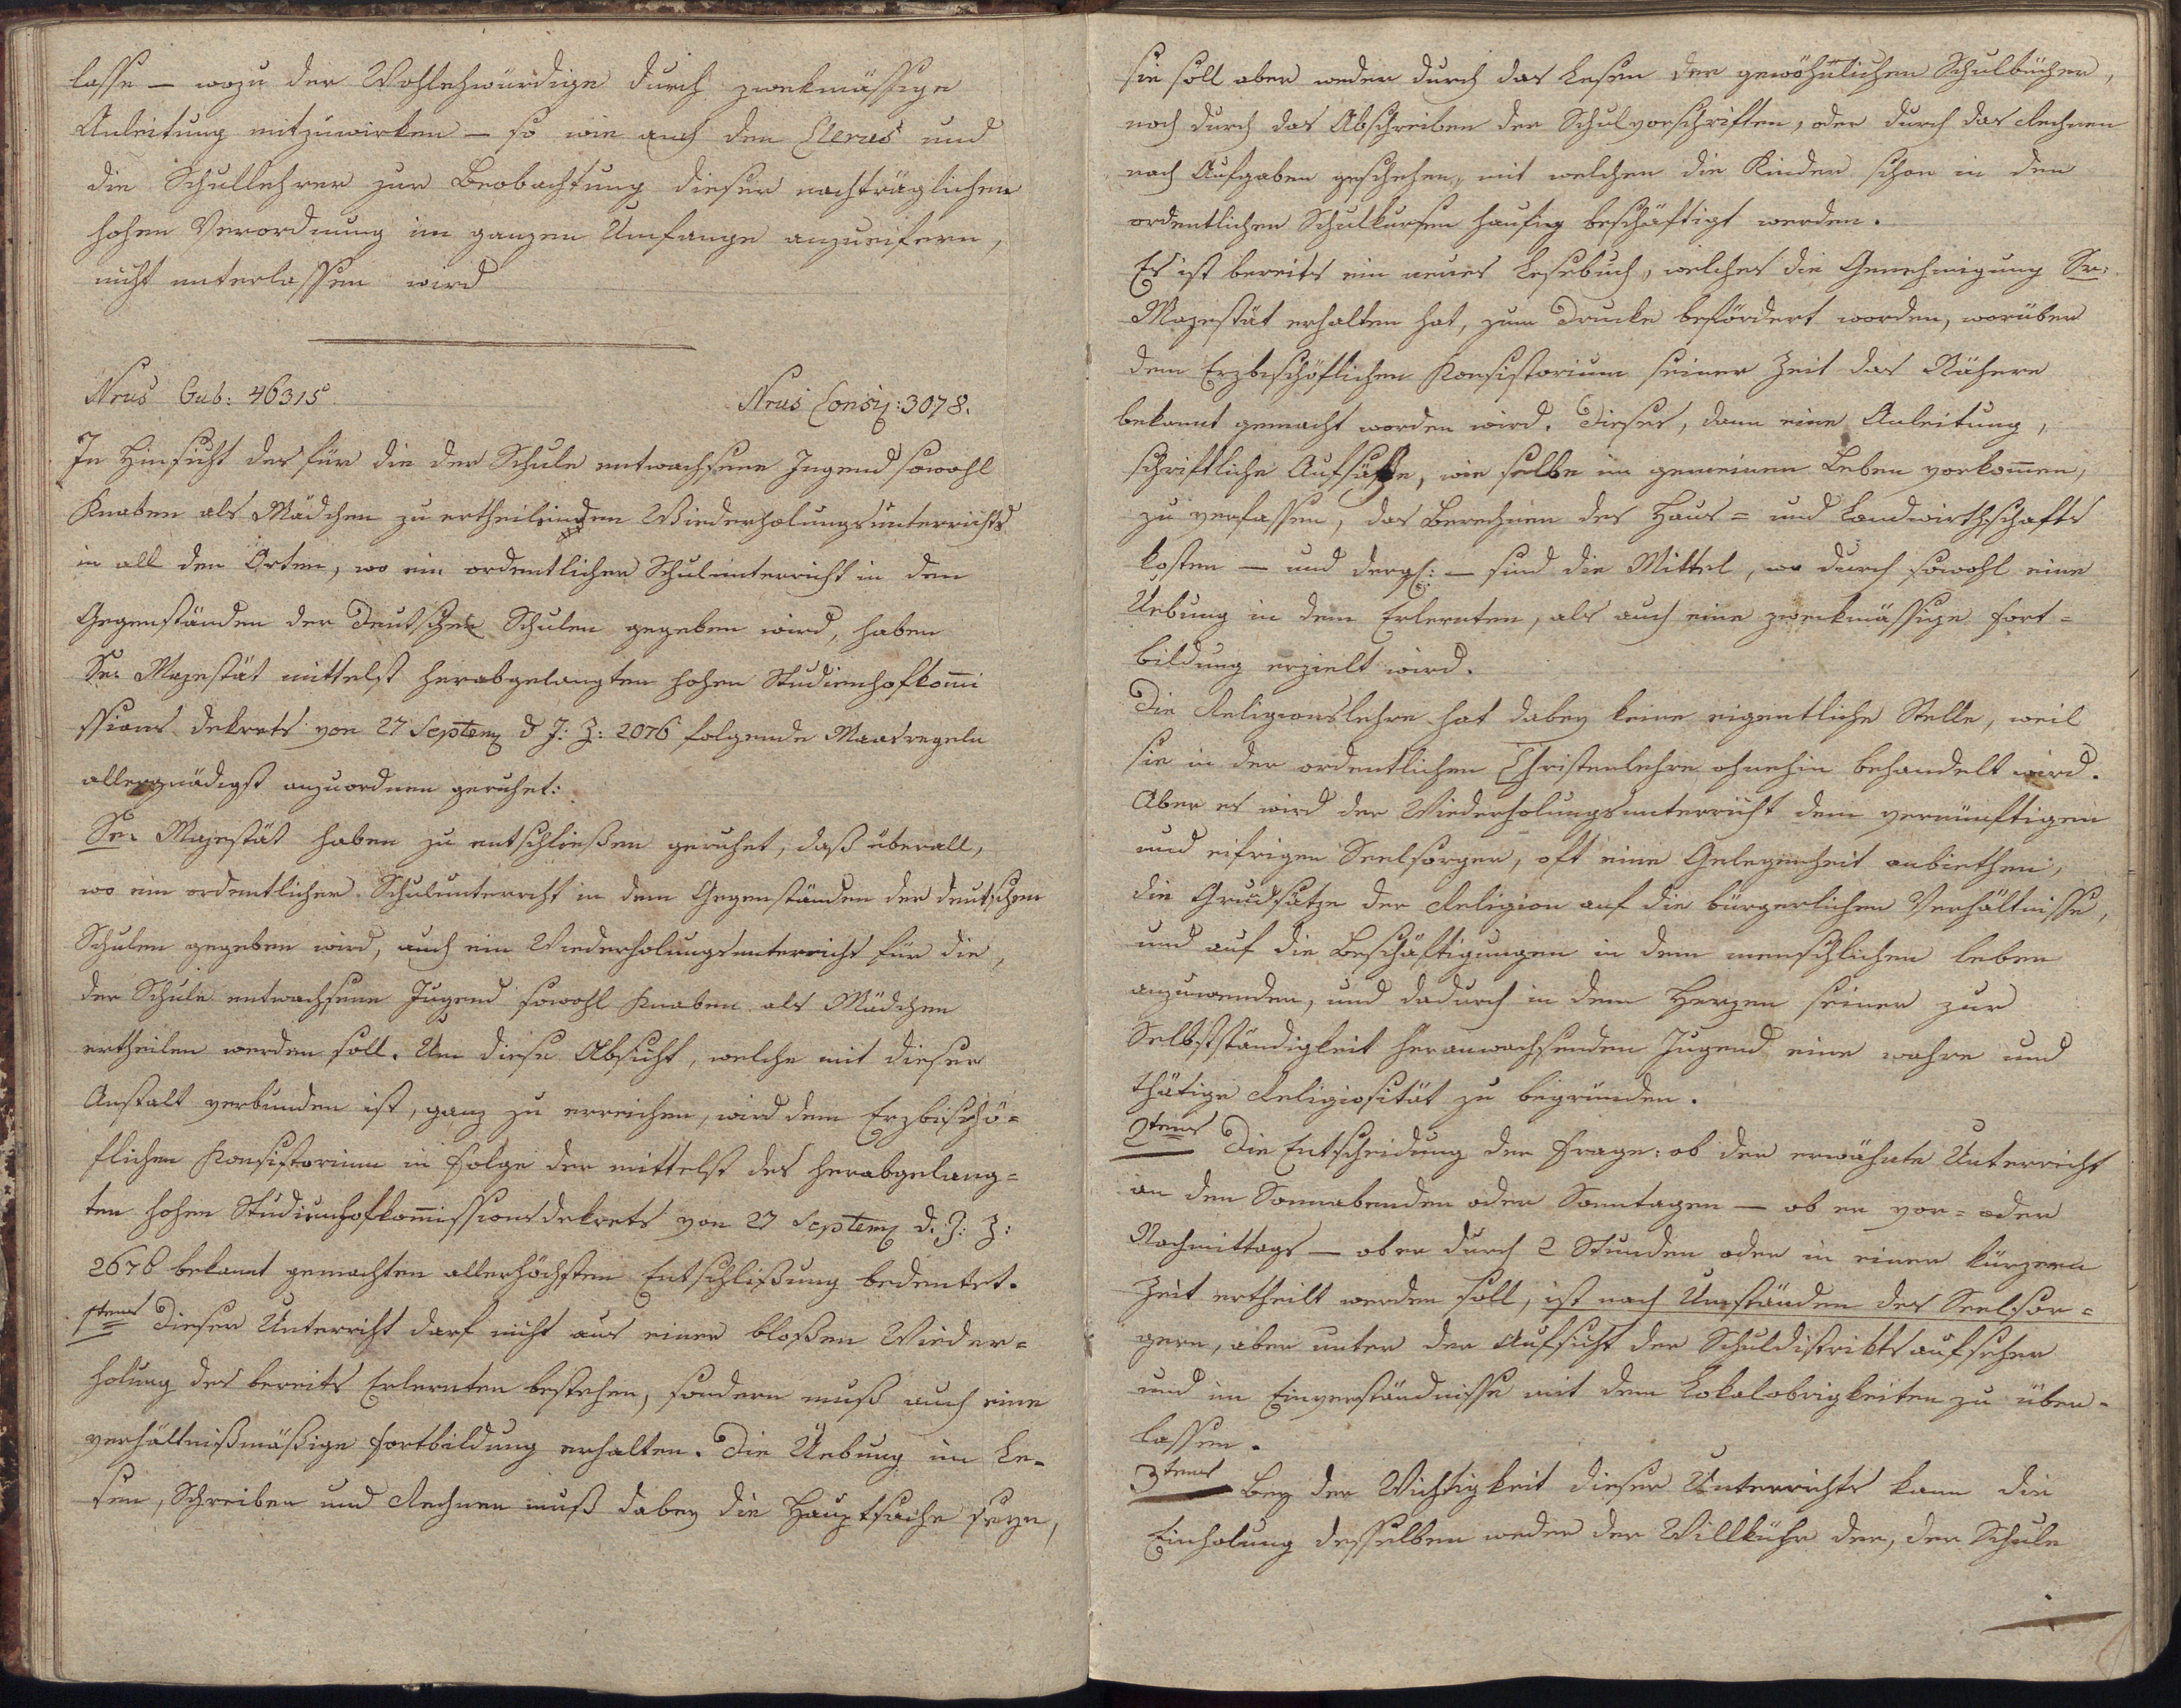 lasse — wozu der Wohlehwürdige durch zwekmässige
Anleitung mitzuwirken — so wie auch den Clerus und
die Schullehrer zur Beobachtung dieser nachträglichen
hohen Verordnung im ganzen Umfange anzueifern,
nicht unterlassen wird
Nrus Gub: 46315.
Nrus Consis: 3078.
In Hinsicht des für die der Schule entwachsene Jugend sowohl
Knaben als Mädchen zu ertheilenden Wiederholungsunterrichts
in all den Orten, wo ein ordentlicher Schulunterricht in den
Gegenständen der Deutschen Schulen gegeben wird, haben
Se: Majestät mittelst herabgelangten hohen Studienhofkom̄i
ssions Dekrets von 27 Septem d J: Z: 2076 folgende Maasregeln
allergnädigst anzuordnen geruhet:
Se: Majestät haben zu entschließen geruhet, daß überall,
wo ein ordentlicher Schulunterricht in den Gegenständen der deutschen
Schulen gegeben wird, auch ein Wiederholungsunterricht für die,
der Schule entwachsene Jugend sowohl Knaben als Mädchen
ertheilen werden soll. Um diese Absicht, welche mit dieser
Anstalt verbunden ist, ganz zu erreichen, wird dem Erzbischö=
flichen Konsistorium in Folge der mittelst des herabgelang=
ten hohen Studienhofkom̄issionsdekrets von 27 Septem d. J: Z:
2678 bekannt gemachten allerhöchsten Entschlißung bedeutet.
1tens Dieser Unterricht darf nicht aus einer bloßen Wieder=
holung des bereits Erlernten bestehen, sondern muß auch eine
verhältnißmäßige Fortbildung erhalten. Die Uebung im Le-
sen, Schreiben und Rechnen muß dabey die Hauptsache seyn,
sie soll aber weder durch das Lesen der gewöhnlichen Schulbücher,
noch durch das Abschreiben der Schulvorschriften, oder durch das Rechnen
nach Aufgaben geschehen, mit welchen die Kinder schon in den
ordentlichen Schulkursen haufig beschäftigt werden.
Es ist bereits ein neues Lesebuch, welches die Genehmigung Sr:
Majestät erhalten hat, zum Drucke befördert worden, worüber
dem Erzbischöflichen Konsistorium seiner Zeit das Nähere
bekannt gemacht worden wird. Dieses, dann eine Anleitung,
schriftliche Aufsätze, wie selbe im gemeinen Leben vorkom̄en,
zu verfassen, das Berechnen des Haus= und Landwirthschafts
kosten — und dergl: — sind die Mittel, wo durch sowohl eine
Uebung in dem Erlernten, als auch eine zwekmässige Fort=
bildung erzielt wird.
Die Religionslehre hat dabey keine eigentliche Stelle, weil
sie in der ordentlichen Christenlehre ohnehin behandelt wird.
Aber es wird der Wiederholungsunterricht dem vernünftigen
und eifrigen Seelsorger, oft eine Gelegenheit anbiethen,
die Grudsätze der Religion auf die bürgerlichen Verhältnisse,
und auf die Beschäftigungen in dem menschlichen Leben
anzuwenden, und dadurch in dem Herzen seiner zur
Selbstständigkeit heranwachsenden Jugend eine wahre und
thätige Religiosität zu begründen.
2tens Die Entscheidung der Frage: ob der erwähnte Unterricht
an den Sonnabenden oder Sonntagen — ob er vor= oder
Nachmittags — ob er durch 2 Stunden oder in einer kürzern
Zeit ertheilt werden soll, ist nach Umständen des Seelsor=
gern, aber unter der Aufsicht der Schuldistriktsaufseher
und im Einverständnisse mit dem Lokalobrigkeiten zu über-
lassen.
3tens Bey der Wichtigkeit dieser Unterrichts kann die
Einholung desselben weder der Willkühr der, der Schule